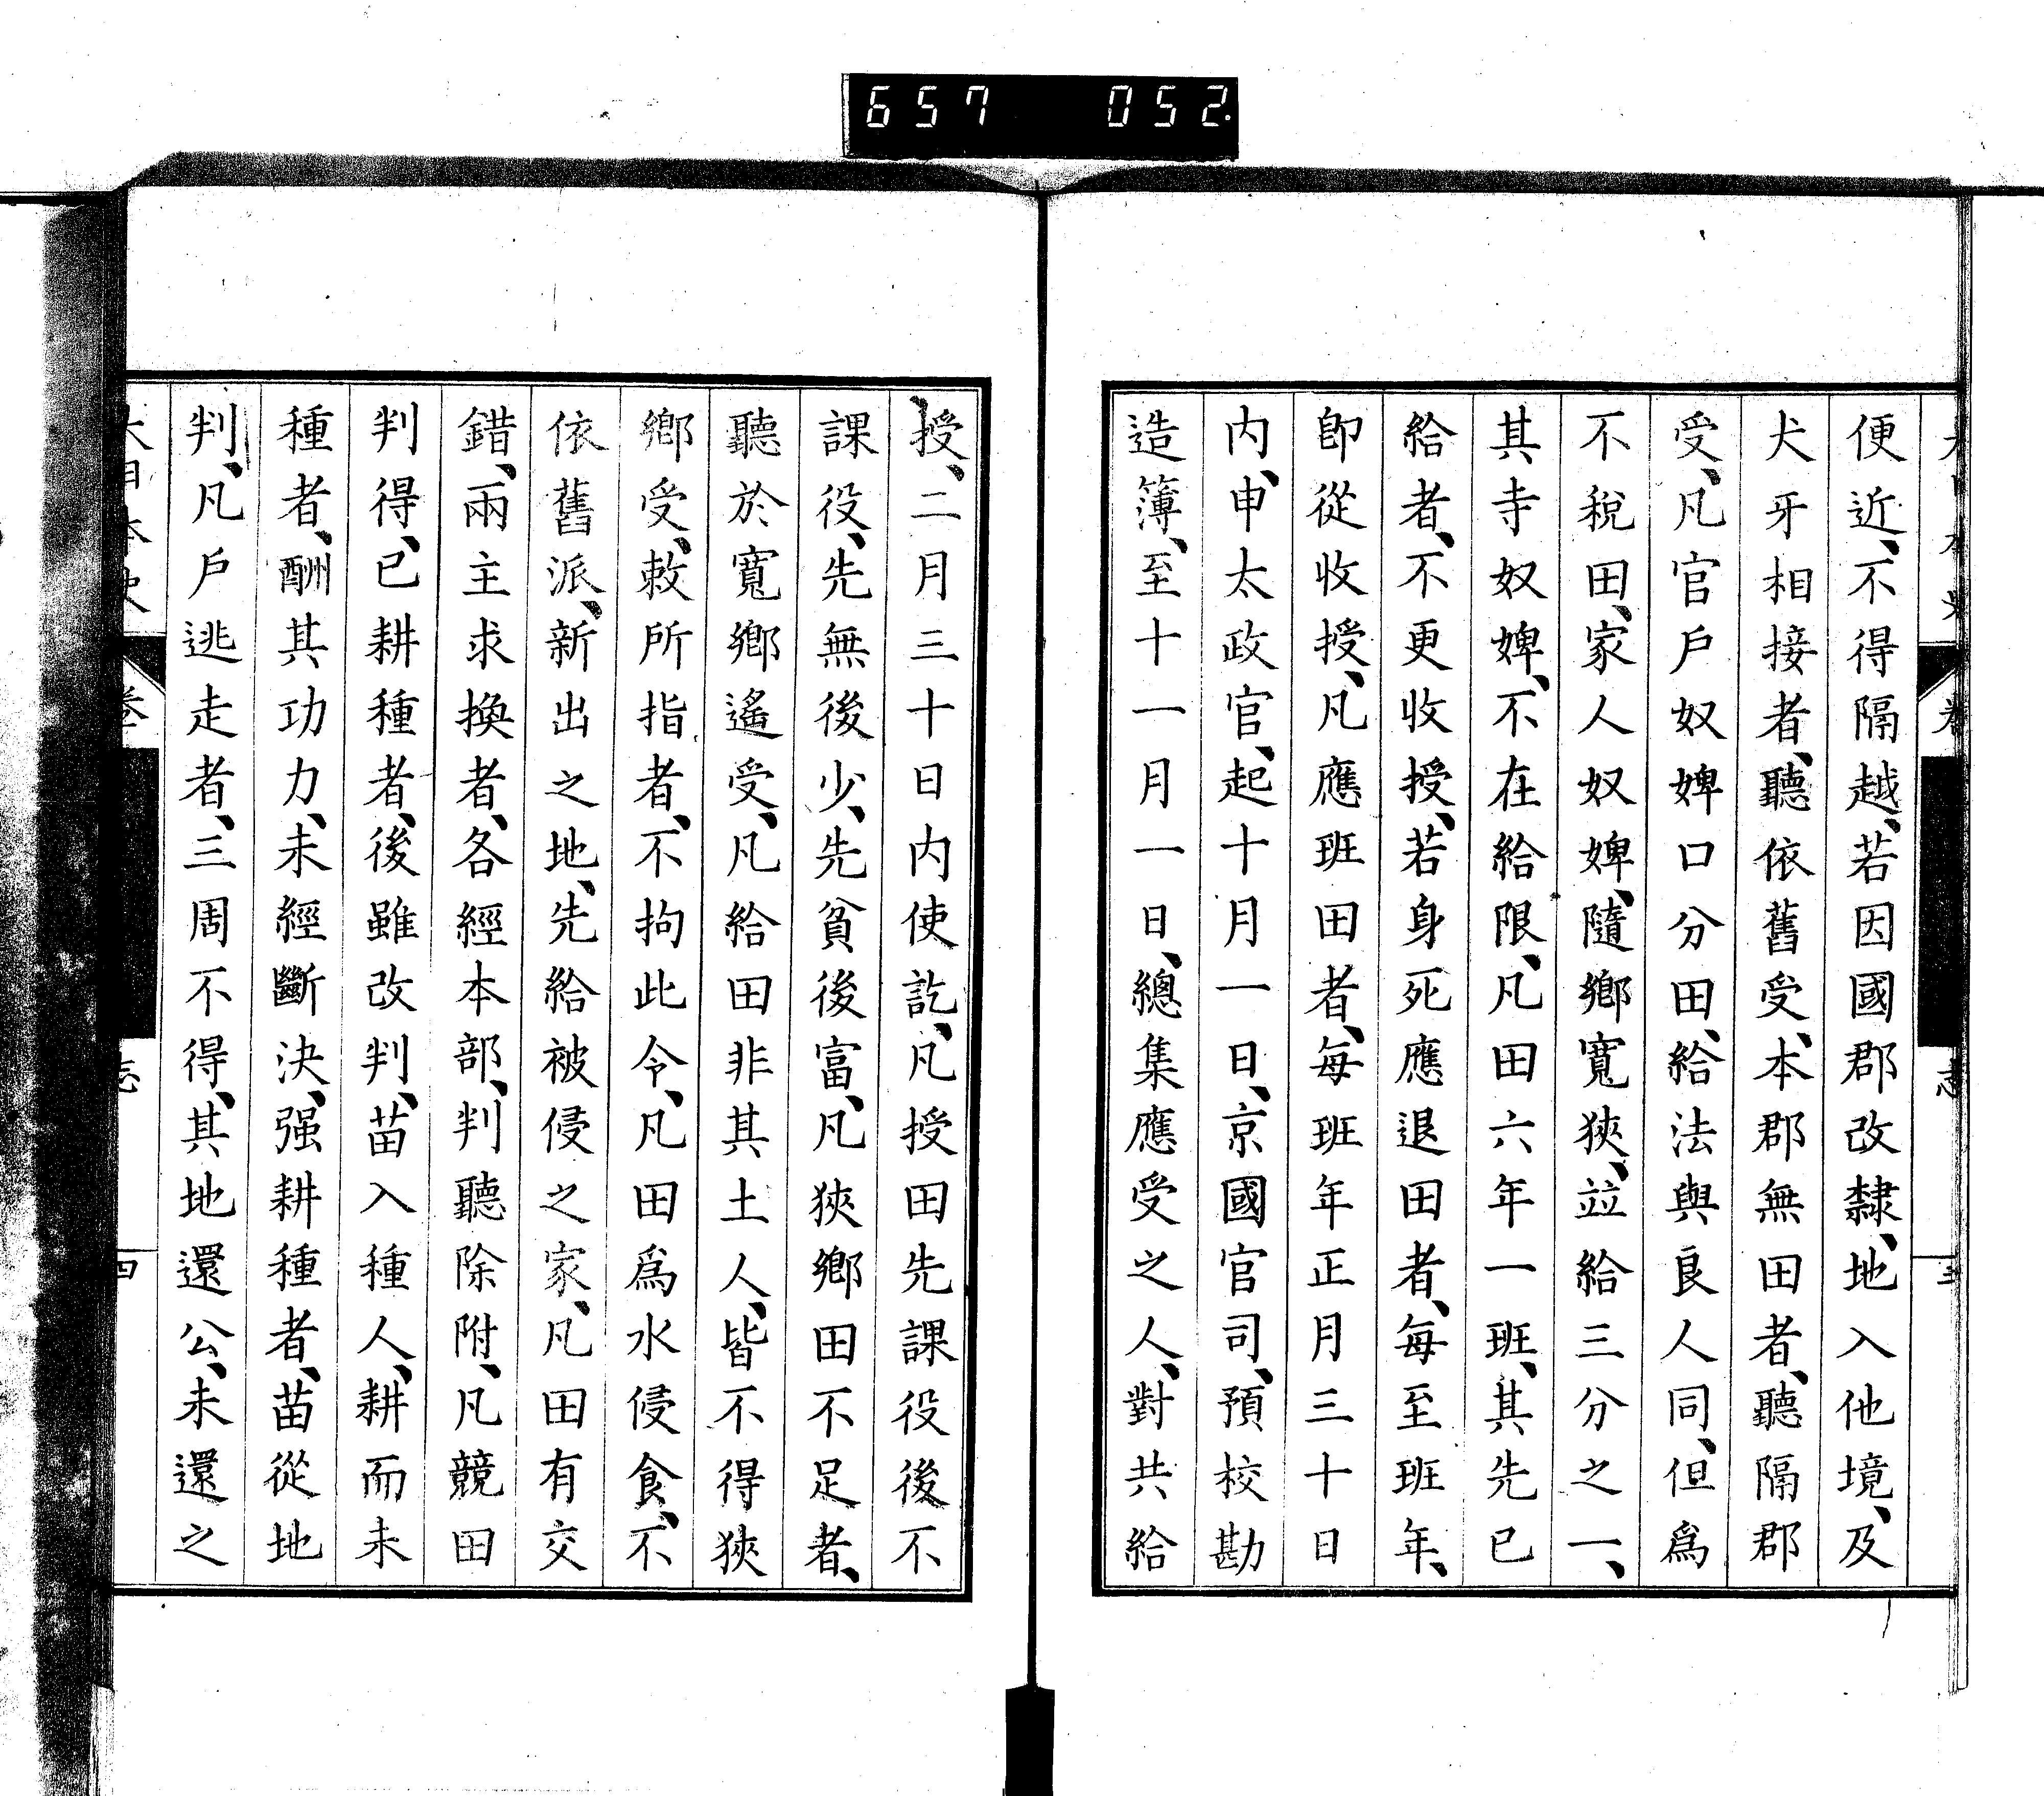 657 052
便近、不得隔越、若因國郡改隸、地入他境、及
犬牙相接者、聽依舊受、本郡無田者、聽隔郡
受、凡官戶奴婢口分田、給法與良人同、但爲
不稅田、家人奴婢、隨鄉寬狹、竝給三分之一、
其寺奴婢、不在給限、凡田六年一班、其先已
給者、不更收授、若身死應退田者、每至班年、
卽從收授、凡應班田者、每班年正月三十日
内、申太政官、起十月一日、京國官司、預校勘
造簿、至十一月一日、總集應受之人、對共給
授、二月三十日内使訖、凡授田先課役後不
課役、先無後少、先貧後富、凡狹鄉田不足者、
聽於寬鄉遙受、凡給田非其土人、皆不得狹
鄉受、敕所指者、不拘此令、凡田爲水侵食、不
依舊派、新出之地、先給被侵之家、凡田有交
錯、兩主求換者、各經本部、判聽除附、凡競田
判得、已耕種者、後雖改判、苗入種人、耕而未
種者、酬其功力、未經斷決、强耕種者、苗從地
判、凡戶逃走者、三周不得、其地還公、未還之
大日本史 卷 志 四